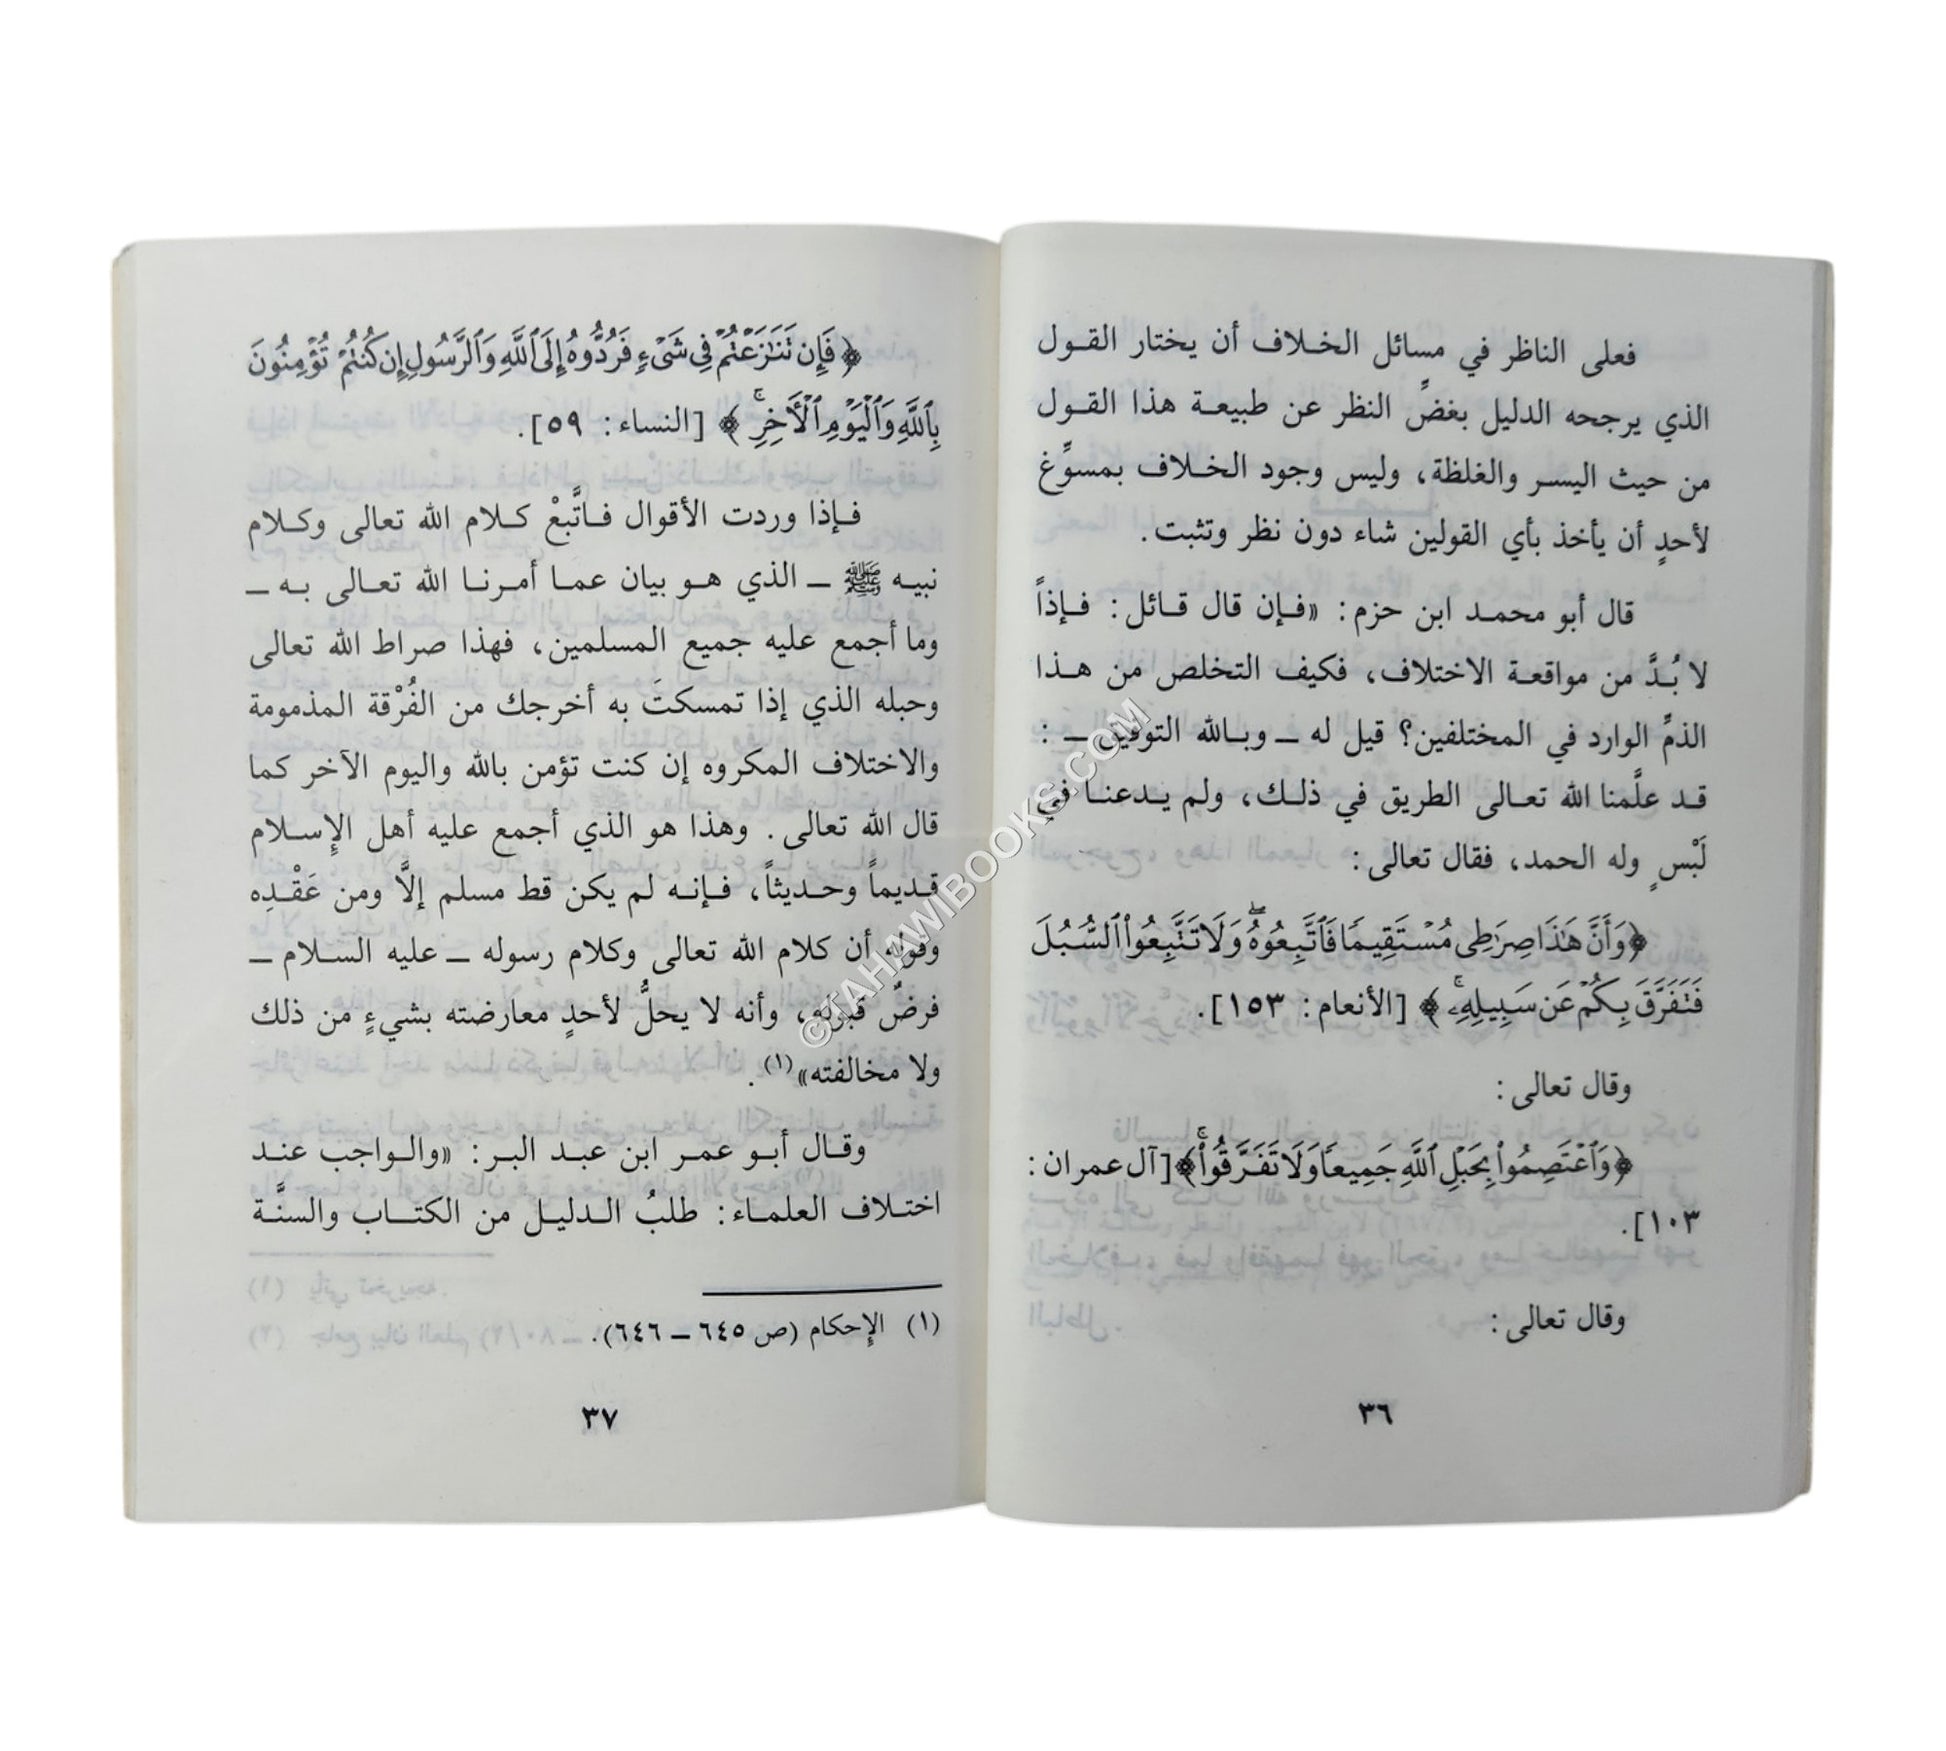 فعلى الناظر في مسائل الخلاف أن يختار القول
الذي يرجحه الدليل بغضِّ النظر عن طبيعة هذا القول
من حيث اليسر والغلظة، وليس وجود الخلاف بمسوِّغ
لأحدٍ أن يأخذ بأي القولين شاء دون نظر وتثبت.
قال أبو محمد ابن حزم: «فإن قال قائل: فإذاً
لا بُدَّ من مواقعة الاختلاف، فكيف التخلص من هذا
الذمِّ الوارد في المختلفين؟ قيل له ــ وبالله التوفيق ــ :
قد علَّمنا الله تعالى الطريق في ذلك، ولم يدعنا في
لَبْسٍ وله الحمد، فقال تعالى:
﴿وَأَنَّ هَٰذَا صِرَٰطِى مُسْتَقِيمًا فَٱتَّبِعُوهُ ۖ وَلَا تَتَّبِعُوا۟ ٱلسُّبُلَ
فَتَفَرَّقَ بِكُمْ عَن سَبِيلِهِۦ ۚ﴾ [الأنعام: ١٥٣].
وقال تعالى:
﴿وَٱعْتَصِمُوا۟ بِحَبْلِ ٱللَّهِ جَمِيعًا وَلَا تَفَرَّقُوا۟ ۚ﴾ [آل عمران:
١٠٣].
وقال تعالى:
٣٦
﴿فَإِن تَنَٰزَعْتُمْ فِى شَىْءٍ فَرُدُّوهُ إِلَى ٱللَّهِ وَٱلرَّسُولِ إِن كُنتُمْ تُؤْمِنُونَ
بِٱللَّهِ وَٱلْيَوْمِ ٱلْأَخِرِ ۚ﴾ [النساء: ٥٩].
فإذا وردت الأقوال فاتَّبعْ كلام الله تعالى وكلام
نبيه ﷺ ــ الذي هو بيان عما أمرنا الله تعالى به ــ
وما أجمع عليه جميع المسلمين، فهذا صراط الله تعالى
وحبله الذي إذا تمسكتَ به أخرجك من الفُرْقة المذمومة
والاختلاف المكروه إن كنت تؤمن بالله واليوم الآخر كما
قال الله تعالى. وهذا هو الذي أجمع عليه أهل الإسلام
قديماً وحديثاً، فإنه لم يكن قط مسلم إلَّا ومن عَقْدِه
وقوله أن كلام الله تعالى وكلام رسوله ــ عليه السلام ــ
فرضٌ قبوله، وأنه لا يحلُّ لأحدٍ معارضته بشيءٍ من ذلك
ولا مخالفته»(١).
وقال أبو عمر ابن عبد البر: «والواجب عند
اختلاف العلماء: طلبُ الدليل من الكتاب والسنَّة
(١) الإحكام (ص ٦٤٥ ــ ٦٤٦).
٣٧
©TAHAWIBOOKS.COM